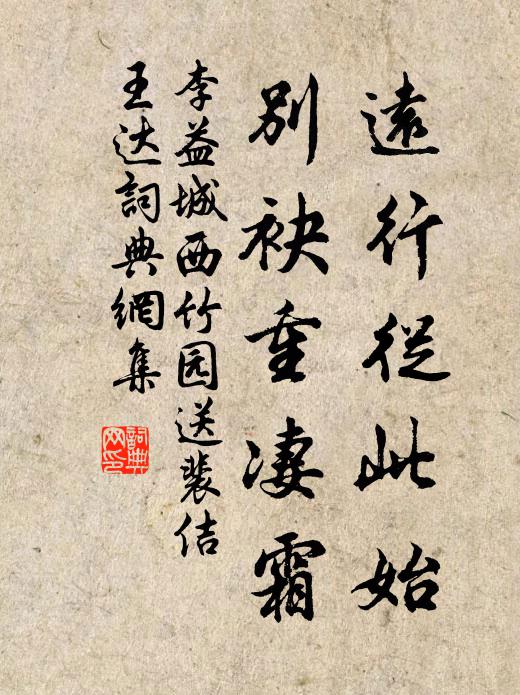 遠行從此始
別袂重淒霜
李益城西竹园送裴佶
王达詞典網集
詞典
网印